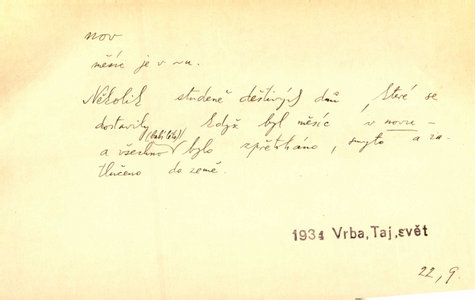 nov
měsíc je v ~u.
Několik studeně deštivých dnů, které se
dostavily, když byl měsíc v novu –
a všechno (září léta) bylo zpřetrháno, smyto a za-
tlučeno do země.
1931 Vrba, Taj. svět
22, 9.